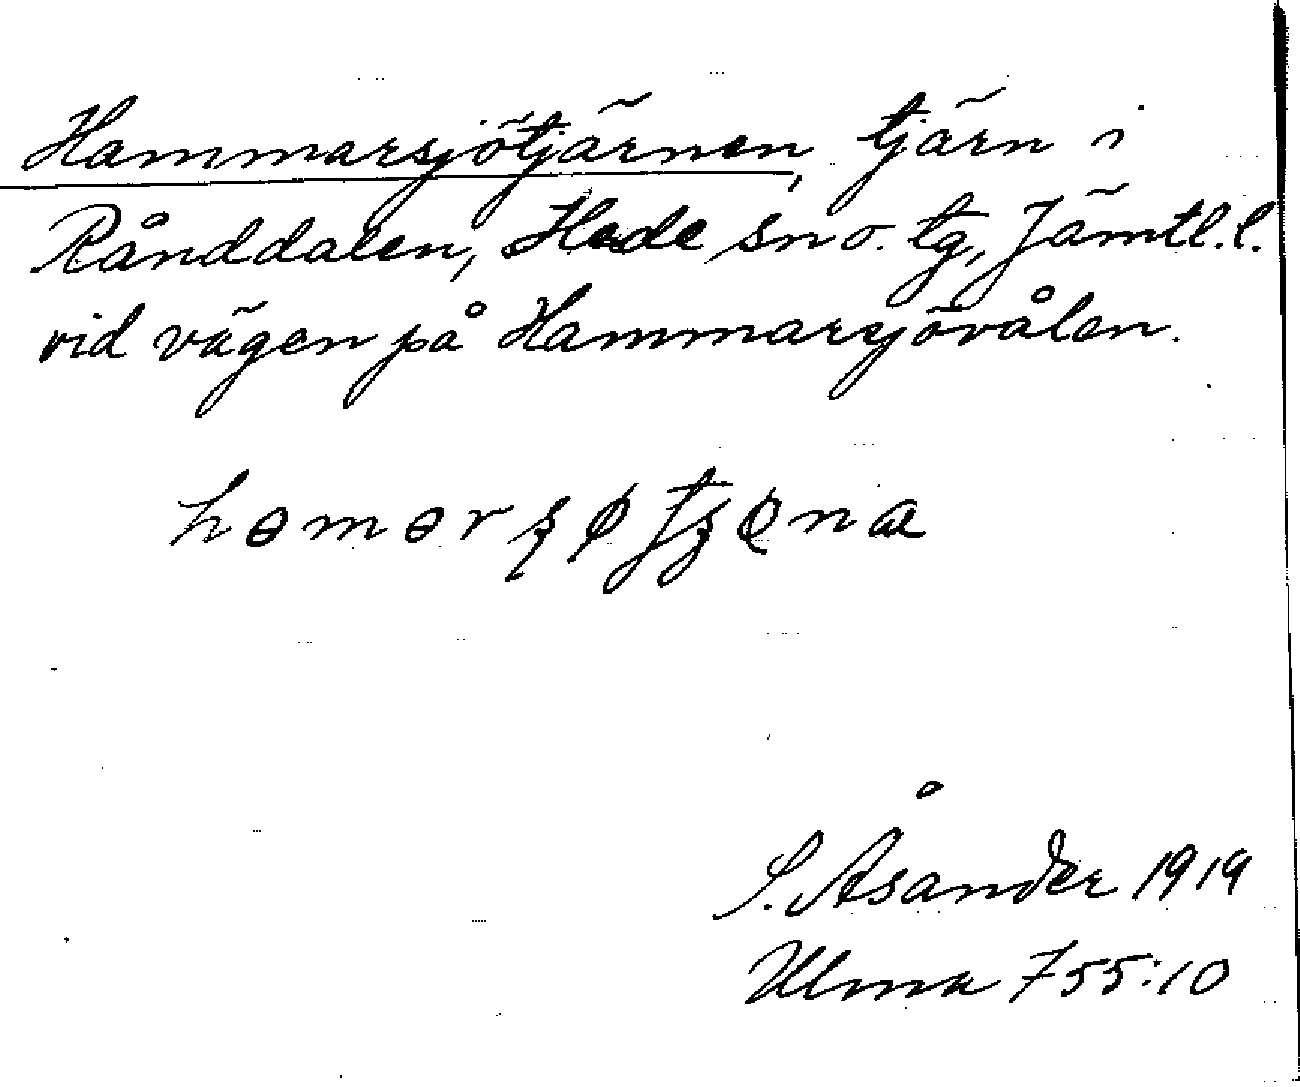 Hammarsjötjärnen, tjärn i
Rånddalen, Hede sn o. tg, Jämtl.l.
vid vägen på Hammarsjövålen.
S. Åsander 1919
Ulma 755:10